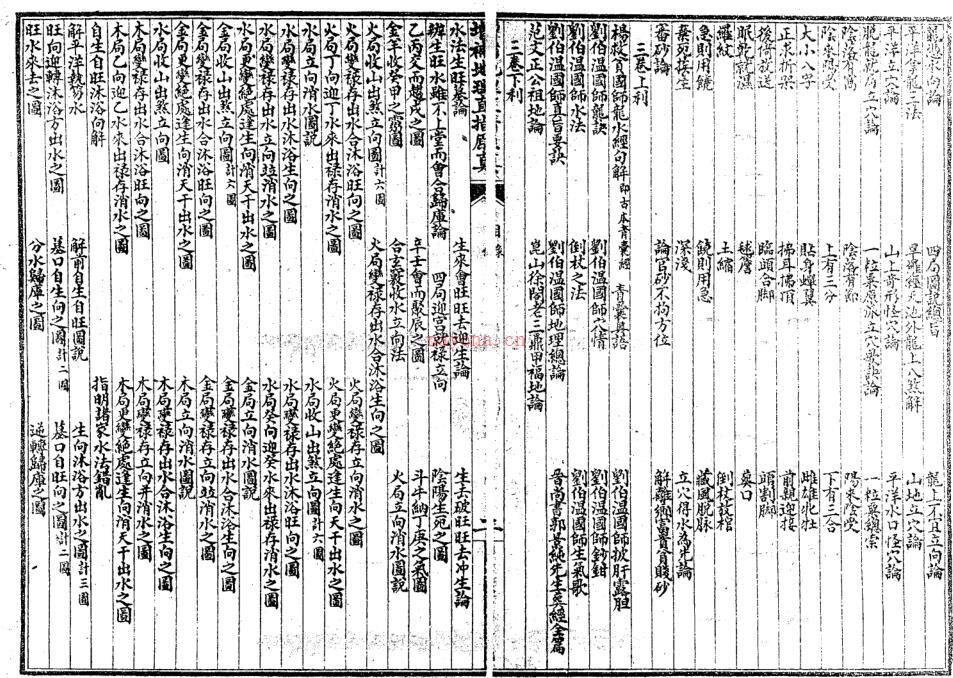 龍格求向論 四局圖說總旨 龍上不宜立向論
平洋全龍二法 山地立穴論
平洋立穴論 山上奇形怪穴論 平洋水口怪穴論
脫龍就局立穴論 一粒粟原派立穴要訣論 一粒粟穎索
陰落陽窩 陰落有節 陽來陰受
陰來陽受 上有三分 下有三合
大小八字 貼身蟬翼 雌雄牝牡
正求折架 拂耳拂頂 前親迎接
後倚放送 臨頭合腳 詔割腳
眠乾就濕 毬簷 葬口
羅紋 土縮 倒杖放棺
急則用饒 饒則用急 藏風脫脈
棄死挨生 深淺 立穴得水為先論
番砂論 論官砂不拘方位 解離鄉富貴貧賤砂
三卷上利
楊救貧國師龍水經句解即古本青囊經 青囊奧語 劉伯溫國師披肝露胆
劉伯溫國師龍訣 劉伯溫國師穴情 劉伯溫國師鈐鉗
劉伯溫國師水法 倒杖之法 劉伯溫國師生氣歌
劉伯溫國師真旨要訣 劉伯溫國師地理總論 晉尚書郭景純先生葬經全篇
范文正公祖地論 崑山徐閣老三鼎甲福地論
三卷下利
增補地理直指原真 目錄
水法生旺墓論 生來會旺旺去迎生論 生去破旺旺去冲生論
辨生旺水雖不上堂而會合歸庫論 四局迎宮就祿立向 陰陽生死之圖
乙丙交而趨戌之圖 辛壬會而聚辰之圖 斗牛納丁庚之氣圖
金羊收癸甲之靈圖 合玄竅收水立向法 火局立向消水圖說
火局收山出煞立向圖計六圖 火局變祿存出水合沐浴生向之圖
火局變祿存出水合沐浴旺向之圖 火局變祿存立向消水之圖
火局丁向迎丁水來出祿存消水之圖 火局更變絕處逢生向天干出水之圖
水局立向消水圖說 水局收山出煞立向圖計六圖
水局變祿存出水沐浴生向之圖 水局變祿存出水沐浴旺向之圖
水局變祿存出水立向並消水之圖 水局癸向迎癸水來出祿存消水之圖
水局更變絕處逢生向消天干出水之圖 金局立向消水圖說
金局收山出煞立向圖計六圖 金局變祿存出水合沐浴生向之圖
金局變祿存出水合沐浴旺向之圖 金局變祿存立向並消水之圖
金局更變絕處逢生向消天干出水之圖 木局立向消水圖說
木局收山出煞立向圖 木局變祿存出水合沐浴生向之圖
木局變祿存出水合沐浴旺向之圖 木局變祿存立向并消水之圖
木局乙向迎乙水來出祿存消水之圖 木局更變絕處逢生向消天干出水之圖
自生自旺沐浴向解 指明諸家水法錯亂
解平洋執笏水 解前自生自旺圖說 生向沐浴方出水之圖計三圖
旺向迎轉沐浴方出水之圖 墓口自生向之圖計二圖 墓口自旺向之圖計二圖
旺水來去之圖 分水歸庫之圖 逆轉歸庫之圖